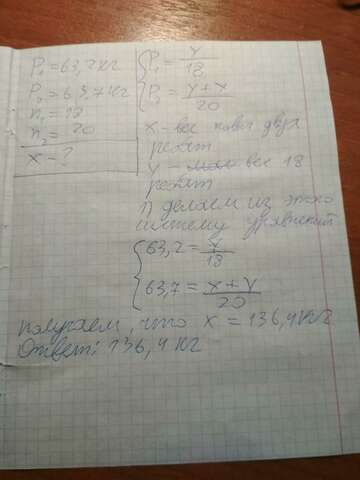 P₁ = 63,2 кг
P₂ = 63,7 кг
n₁ = 18
n₂ = 20
x - ?
P₁ = y/18
P₂ = y+x/20
x - вес новых двух
ребят
y - вес 18
ребят
1) делаем из этого
систему уравнений
63,2 = y/18
63,7 = x+y/20
получаем, что x = 136,4 кг
Ответ: 136,4 кг